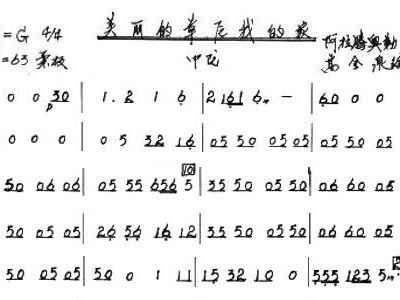 = G 4/4 美丽的草原我的家 阿拉腾奥勒
=63 柔板 中尤
0 0 30 | 1. 2 1 6 | 2 161 6 - | 60 0 0
0 0 0 | 0 5 32 16 | 05 50 05 05 | 05 50 05
50 06 06 | 05 55 656 5 10 | 35 50 05 50 | 06 60 05
50 05 05 | 26 56 16 12 | 35 50 05 50 | 06 60 05
50 05 05 | 50 0 1 11 | 15 32 10 0 | 555 123 5